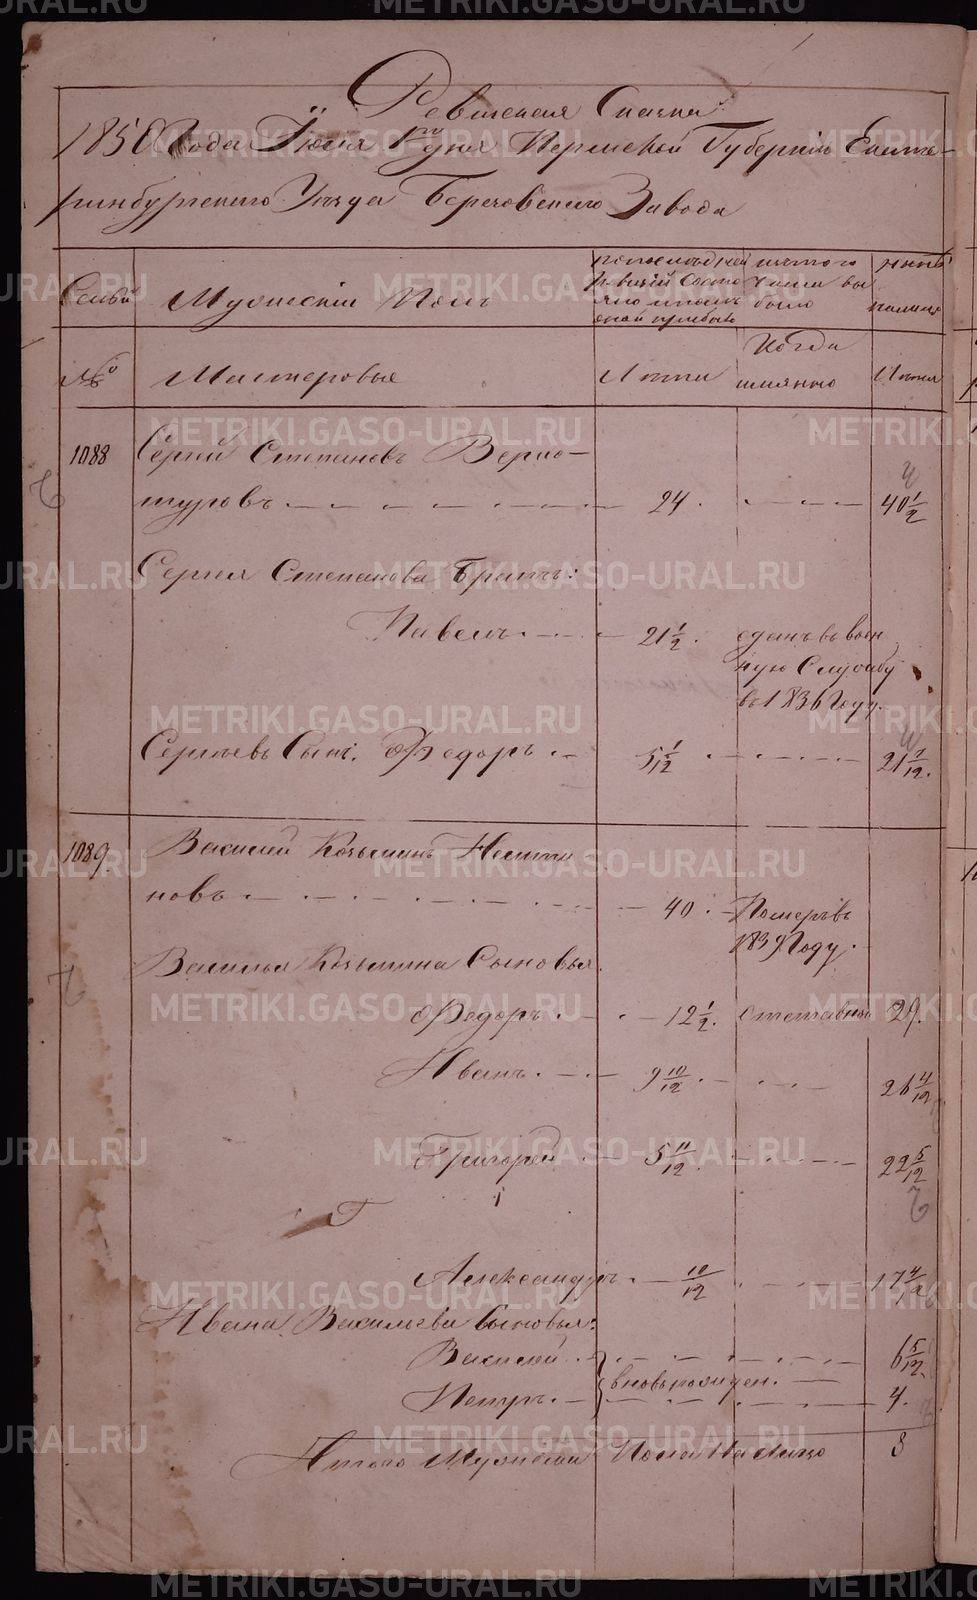 Ревизская Сказка
1850 Года Іюля 1го дня Пермской Губерніи Екате-
ринбургскаго Уезда Березовскаго Завода
Семьи
Мужескій Полъ
по последней
ревизій состо
яло и после
оной прибыло
изъ того
числа вы
было
ныне
налицо
№
Мастеровые
Лета
Когда
имянно
Лета
1088
Сергей Степановъ Верхо-
туровъ
24
40 1/2
Сергея Степанова Братъ:
Павелъ
21 1/2
отданъ въ воен
ную Службу
въ 1836 Году
Сергеевъ Сынъ. Федоръ
5 1/12
21 7/12
1089
Василей Козьминъ
новъ
40
Померъ въ
1839 Году
Василья Козьмина Сыновья
Федоръ
12 1/2
29
Иванъ
9 10/12
26 4/12
Григорей
5 11/12
22 5/12
Г
Александръ
10/12
17 4/12
Ивана Васильева Сыновья:
Василей
6 5/12
вновь рожден.
Петръ
4
Итого Мужеска Пола На Лицо
8
METRIKI.GASO-URAL.RU